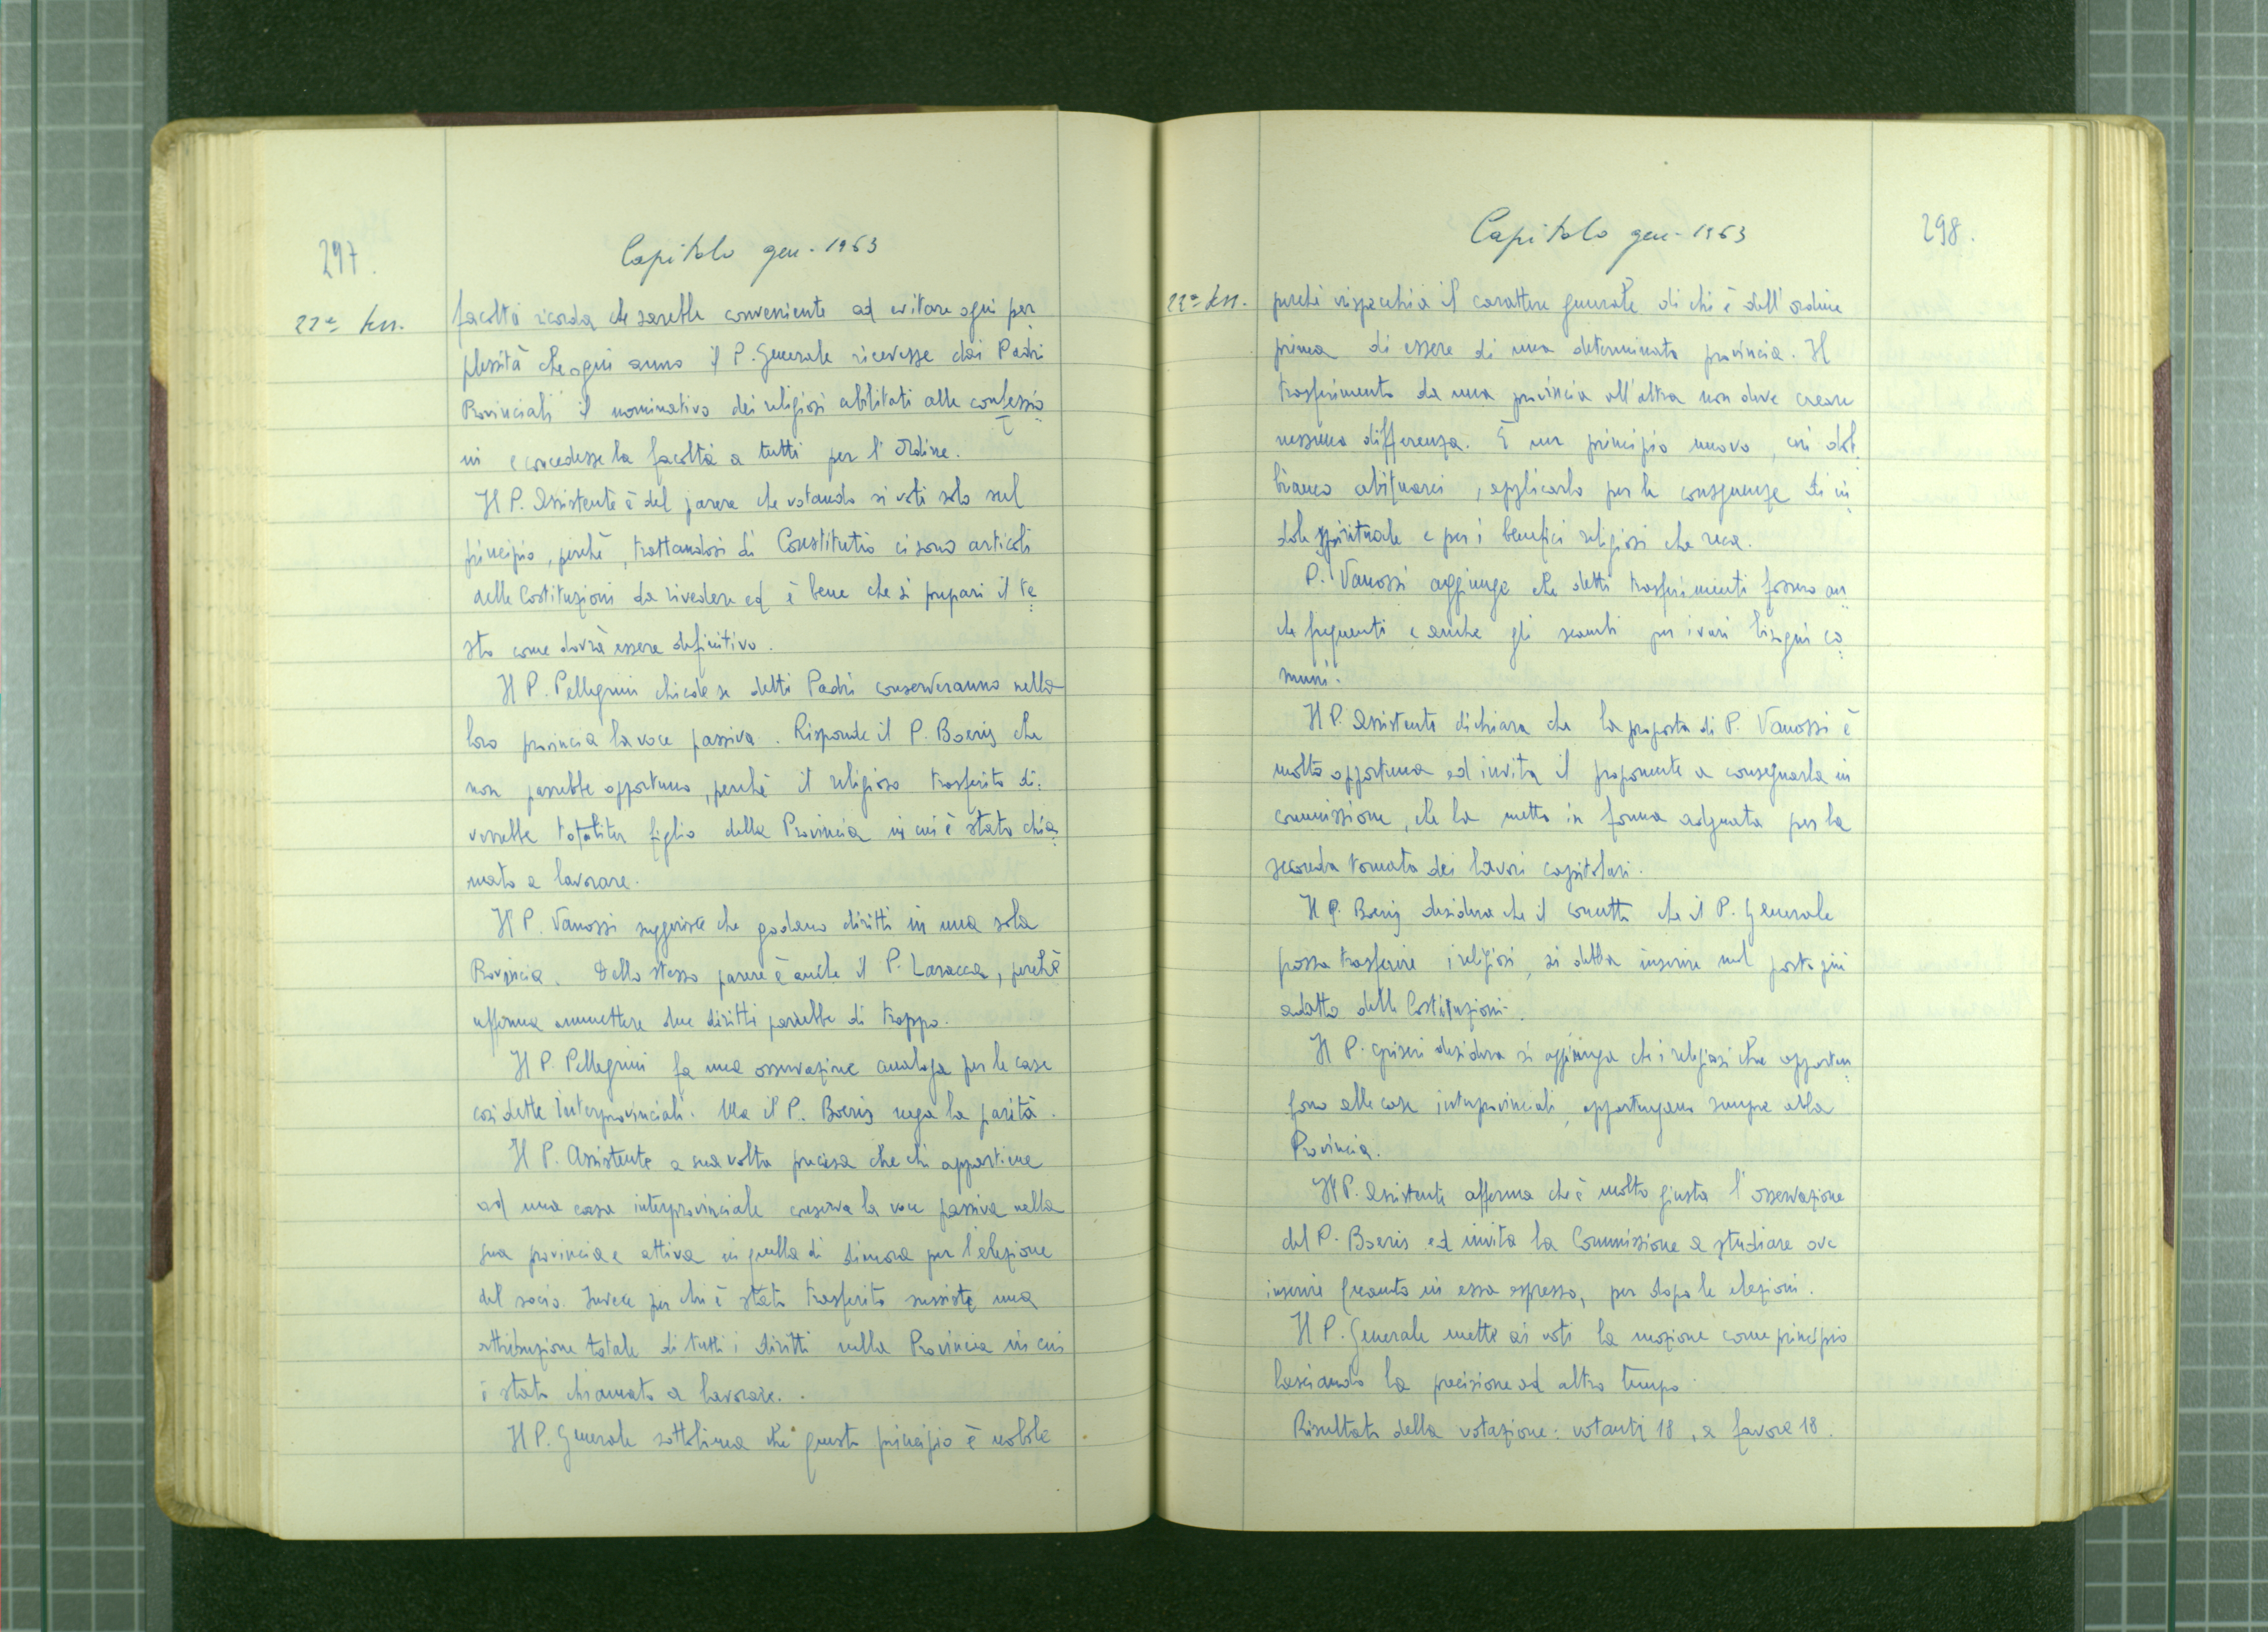 297.
Capitolo gen. 1963
22ª sess.
facoltà ricorda che sarebbe conveniente ad evitare ogni per
plessità che ogni anno il P. Generale ricevesse dai Padri
Provinciali il nominativo dei religiosi abilitati alle confessio
ni e concedesse la facoltà a tutti per l'Ordine.
Il P. Assistente è del parere che votando si voti solo sul
principio, perchè, trattandosi di Constitutio ci sono articoli
delle Costituzioni da rivedere ed è bene che si prepari il te
sto come dovrà essere definitivo.
Il P. Pellegrini chiede se detti Padri conserveranno nella
loro provincia la voce passiva. Risponde il P. Boeris che
non parrebbe opportuno, perchè il religioso trasferito di-
verrebbe totaliter figlio della Provincia in cui è stato chia
mato a lavorare.
Il P. Vanossi suggerisce che godano diritti in una sola
Provincia. Dello stesso parere è anche il P. Laracca, perchè
afferma ammettere due diritti parrebbe di troppo.
Il P. Pellegrini fa una osservazione analoga per le case
cosidette Interprovinciali. Ma il P. Boeris nega la parità.
Il P. Assistente a sua volta precisa che chi appartiene
ad una casa interprovinciale conserva la voce passiva nella
sua provincia e attiva in quella di dimora per l'elezione
del socio. Invece per chi è stato trasferito sussiste una
attribuzione totale di tutti i diritti nella Provincia in cui
è stato chiamato a lavorare.
Il P. Generale sottolinea che questo principio è nobile
Capitolo gen. 1963
298.
22ª sess.
perchè rispecchia il carattere generale di chi è dell'ordine
prima di essere di una determinata provincia. Il
trasferimento da una provincia all'altra non deve creare
nessuna differenza. È un principio nuovo, cui dob
biamo abituarci, applicarlo per le conseguenze di in
dole spirituale e per i benefici religiosi che reca.
P. Vanossi aggiunge che detti trasferimenti fossero an
che frequenti e anche gli scambi per i vari bisogni co
muni.
Il P. Assistente dichiara che la proposta di P. Vanossi è
molto opportuna ed invita il proponente a consegnarla in
commissione, che la metta in forma adeguata per la
seconda tornata dei lavori capitolari.
Il P. Boeris desidera che il concetto che il P. Generale
possa trasferire i religiosi, si debba inserire nel posto più
adatto delle Costituzioni.
Il P. Griseri desidera si aggiunga che i religiosi che apparten
gono alle case interprovinciali, appartengano sempre alla
Provincia.
Il P. Assistente afferma che è molto giusta l'osservazione
del P. Boeris ed invita la Commissione a studiare ove
inserire quanto in essa espresso, per dopo le elezioni.
Il P. Generale mette ai voti la mozione come principio
lasciando la precisione ad altro tempo.
Risultato della votazione: votanti 18, a favore 18.